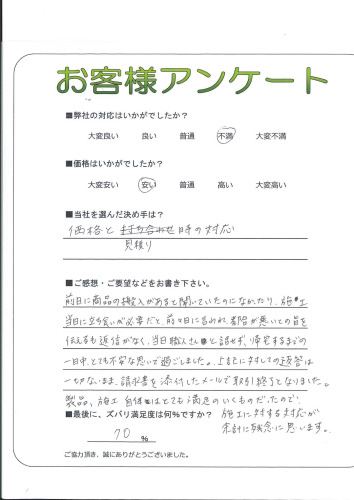 お客様アンケート
■弊社の対応はいかがでしたか？
大変良い 良い 普通 不満 大変不満
■価格はいかがでしたか？
大変安い 安い 普通 高い 大変高い
■当社を選んだ決め手は？
価格と 打ち合わせ時の対応
見積り
■ご感想・ご要望などをお書き下さい。
前日に商品の搬入があると聞いていたのになかったり、施工
当日に立ち会いが必要だと、前々日に言われ、都合が悪いとの旨を
伝えるも返信がなく、当日職人さんと話せず、帰宅するまでの
一日中、とても不安な思いで過ごしました。上記に対しての返答は
一切ないまま、請求書を添付したメールで取引終了となりました。
製品、施工自体はとても満足のいくものだったので、
施工に対する対応が
余計に残念に思います。
■最後に、ズバリ満足度は何%ですか？
70 %
ご協力頂き、誠にありがとうございました。